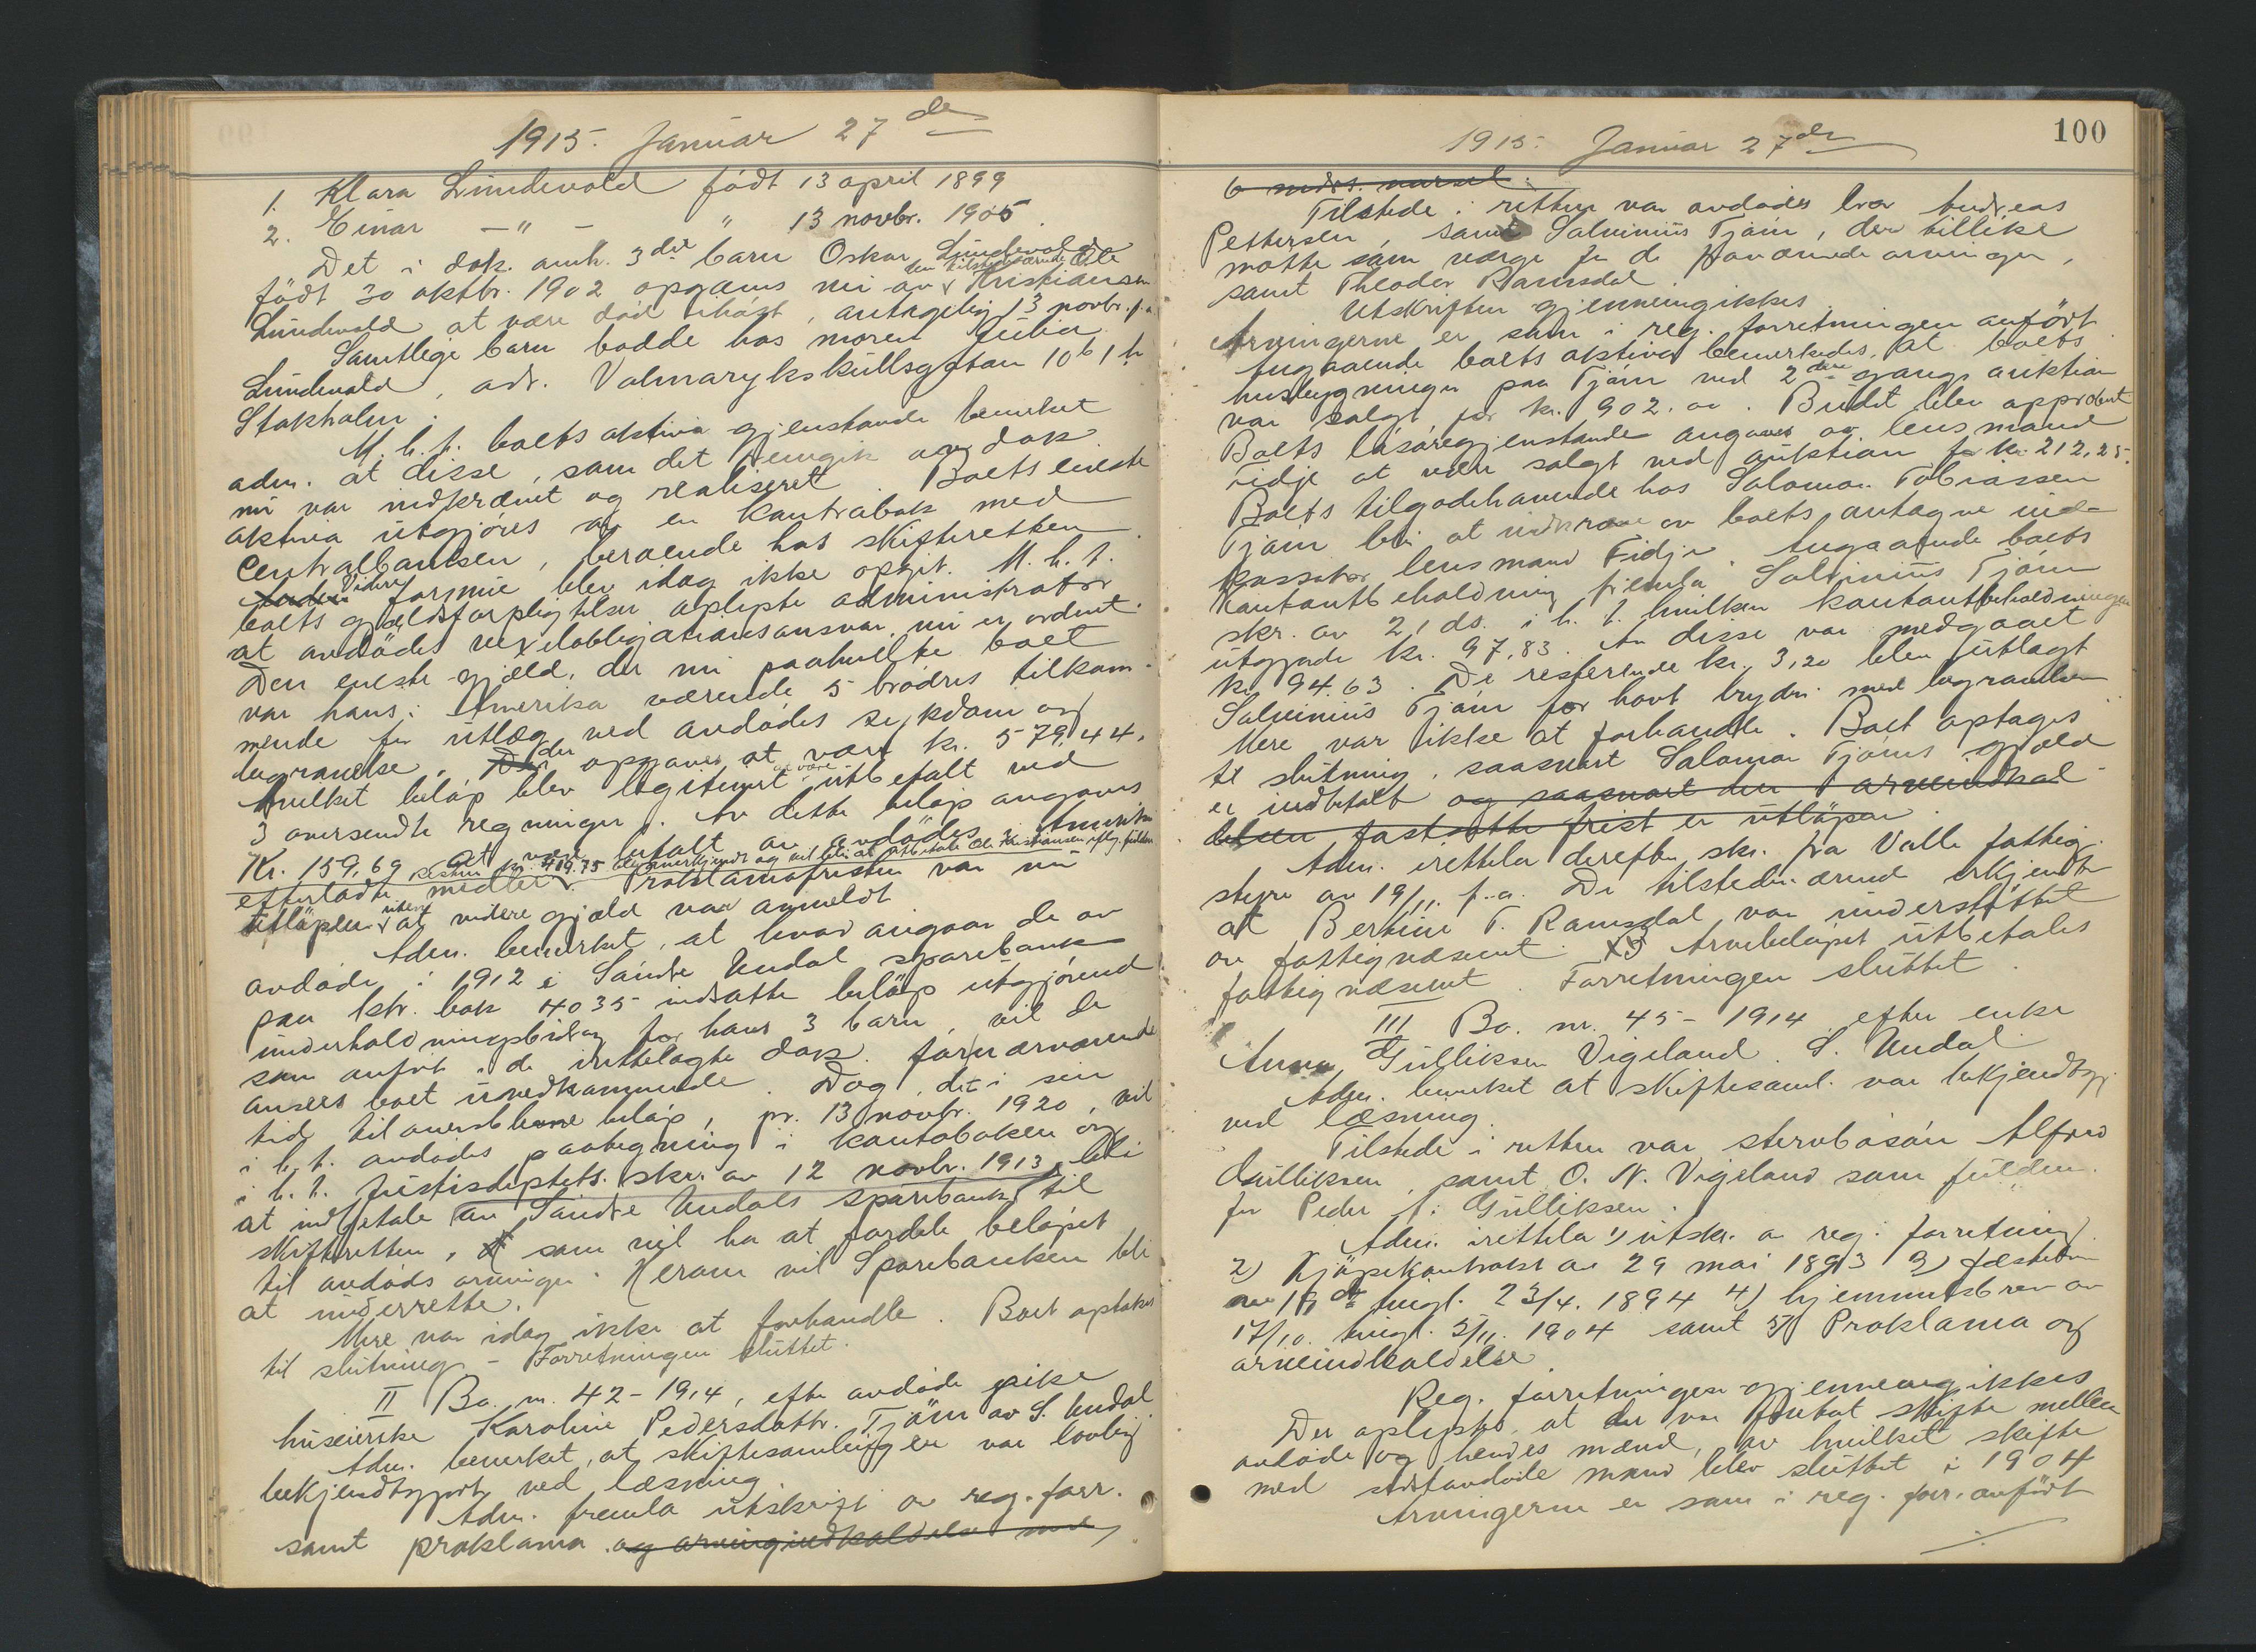 1915. Januar 27de
1. Klara Lundevold født 13 april 1899
2. Einar —"— " 13 novbr. 1905.
Det i dok. anh. 3die barn Oskar Lundevold
født 30 oktbr. 1902 opgaves nu av den tilstedeværende Ole Kristiansen
Lundevold at være død ihøst, antagelig 13 novbr. f.a.
Samtlige barn bodde hos moren
Lundevold, adr. Valmarykskullsgatan 10 b 1 h
Stokholm.
M.h.t. boets aktiva gjenstande bemerket
adm. at disse, som det fremgik av dok.
nu var indkrævet og realiseret. Boets eneste
aktiva utgjøres av en kontrabok med
Centralbanken, beroende hos skifteretten
Videre formue blev idag ikke opgit. M.h.t.
boets gjældsforpligtelser oplyste administrator
at avdødes vexelobligationsansvar nu er ordnet.
Den eneste gjæld, der nu paahvilte boet
var hans i Amerika værende 5 brødres tilkom-
mende for utlæg ved avdødes sykdom og
begravelse, der opgaves at være kr. 579,44.
Hvilket beløp blev legitimert at være utbetalt ved
3 oversendte regninger. Av dette beløp angaves
Kr. 159,69 at være betalt av avdødes i Amerika
efterladte midler. Resten kr. 419.75 blev anerkjendt og vil bli at utbetale Ole Kristiansen iflg. fuldm. Proklamafristen var nu
utløpen uten at videre gjæld var anmeldt
Adm. bemerket, at hvad angaar de av
avdøde i 1912 i Søndre Undal sparebank
paa ktr. bok 4035 indsatte beløp utgjørende
underholdningsbidrag for hans 3 barn, vil de
som anført i de irettelagte dok. for nærværende
ansees boet uvedkommende. Dog, det i sin
tid tiloversblevne beløp, pr. 13 novbr. 1920, vil
i h.t. avdødes paategning i kontraboken og
i h.t. Justisdeptets. skr. av 12 novbr. 1913, bli
at indbetale av Søndre Undals sparebank til
skifteretten, som vil ha at fordele beløpet
til avdøds arvinger. Herom vil Sparebanken bli
at underrette.
Mere var idag ikke at forhandle. Boet optakes
til slutning – Forretningen sluttet.
II Bo. nr. 42 – 1914, efter avdøde pike
huseierske Karoline Pedersdattr. Tjøm av S. Undal
Adm. bemerket, at skiftesamlingen var lovlig
bekjendtgjort ved læsning.
Adm. fremla utskrift av reg. forr.
samt proklama og arvingindkaldelse med
100
1915. Januar 27de
6 mdrs. varsel.
Tilstede i retten var avdødes bror Andreas
Pettersen, samt Salvinius Tjøm, der tillike
møtte som værge for de fraværende arvinger,
samt Theodor Ramsdal
Utskriften gjennemgikkes.
Arvingerne er som i reg. forretningen anført
Angaaende boets aktiva bemerkedes, at boets
husbygninger paa Tjøm ved 2den gangs auktion
var solgt for kr. 902.00. Budet blev approbert
Boets løsøregjenstande angaves av lensmand
Fidje at være solgt ved auktion for kr. 212,25.
Boets tilgodehavende hos Salomon Tobiassen
Tjøm blir at indkræve av boets antagne ind-
kassator lensmand Fidje. Angaaende boets
kontantbeholdning fremla Salvinius Tjøm
skr. av 21 ds. i h.t. hvilken kontantbeholdningen
utgjorde kr. 97,83. Av disse var medgaaet
kr. 94.63. De resterende kr. 3,20 blev utlagt
Salvinius Tjøm for havt bryderi med begravelsen
Mere var ikke at forhandle. Boet optages
til slutning, saasnart Salomon Tjøms gjæld
er indbetalt og saasnart den i arveindkal-
delsen fastsatte frist er utløpen
Adm. irettela derefter skr. fra Valle fattig-
styre av 19/11. f.a. De tilstedeværende erkjendte
at Berthine T. Ramsdal var understøttet
av fattigvæsenet. Arvebeløpet utbetales
fattigvæsenet. Forretningen sluttet.
III Bo. nr. 45 – 1914 efter enke
Anna Gulliksen Vigeland. S. Undal
Adm. bemerket at skiftesaml. var bekjendtgj.
ved læsning.
Tilstede i retten var stervbosøn Alfred
Gulliksen, samt O. N. Vigeland som fuldm.
for Peder A. Gulliksen.
Adm. irettela 1) utskr. av reg. forretning
2) Kjøpekontrakt av 29 mai 1893 3) fæstebrev
tingl. 23/4. 1894 4) hjemmelsbrev av
17/10. tingl. 5/11. 1904 samt 5) Proklama og
arveindkaldelse.
Reg. forretningen gjennemgikkes
Der oplystes, at der var skifte mellem
avdøde og hendes mand, av hvilket skifte
med avdøde mand blev sluttet i 1904
Arvingerne er som i reg. forr. anført